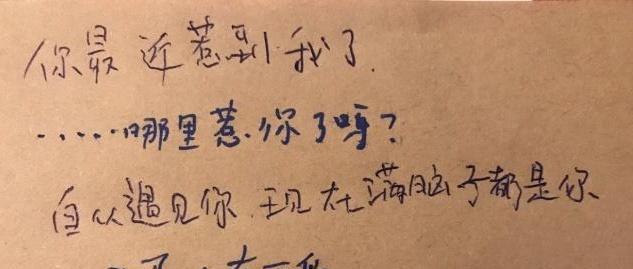 你最近惹到我了.
......哪里惹你了吗?
自从遇见你 现在满脑子都是你